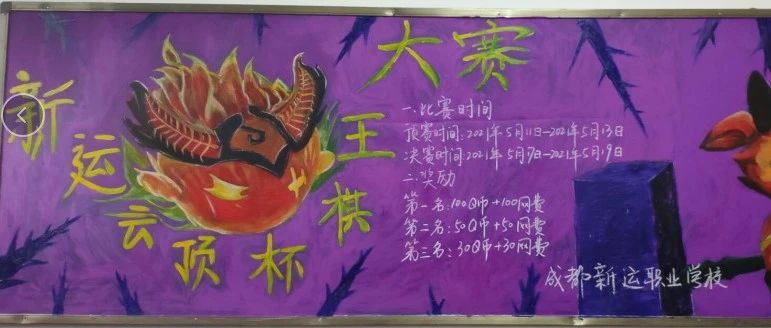 新运云顶杯棋王大赛
一.比赛时间
预赛时间:2021年5月11日-2021年5月13日
决赛时间:2021年5月17日-2021年5月19日
二.奖励
第一名:100Q币+100网费
第二名:50Q币+50网费
第三名:30Q币+30网费
成都新运职业学校